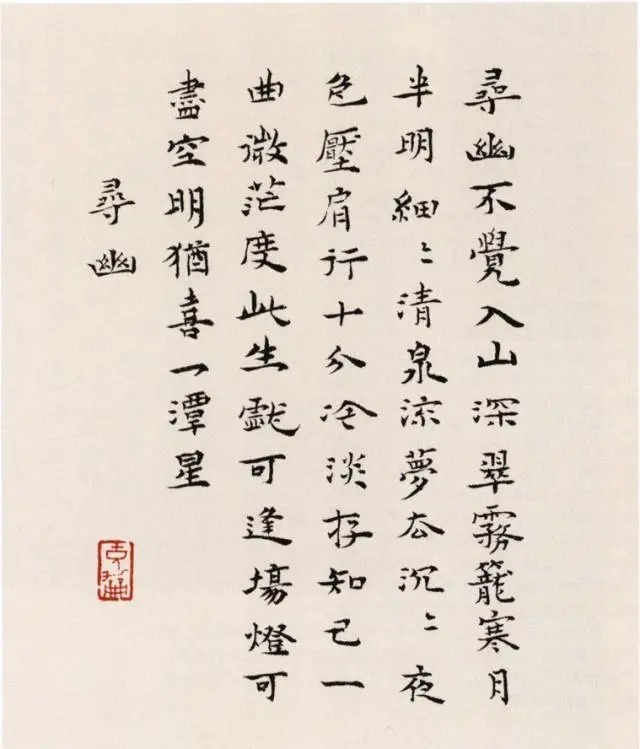 尋幽不覺入山深翠霧籠寒月
半明細〻清泉流夢去沉〻夜
色壓肩行十分冷淡存知己一
曲微茫度此生戲可逢塲燈可
盡空明猶喜一潭星
尋幽